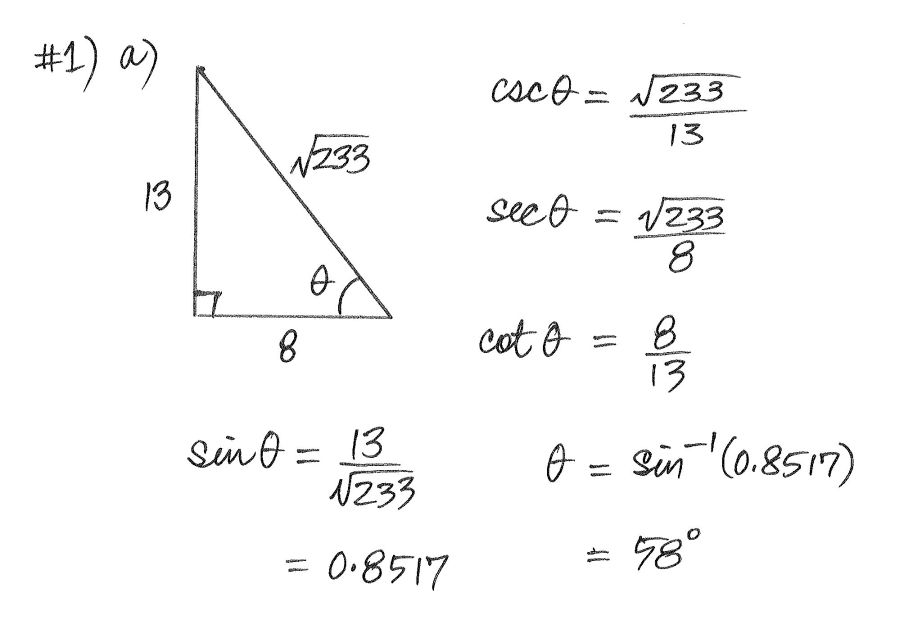 #1) a)
13
√233
θ
8
csc θ = √233 / 13
sec θ = √233 / 8
cot θ = 8 / 13
sin θ = 13 / √233
= 0.8517
θ = sin⁻¹(0.8517)
= 58°